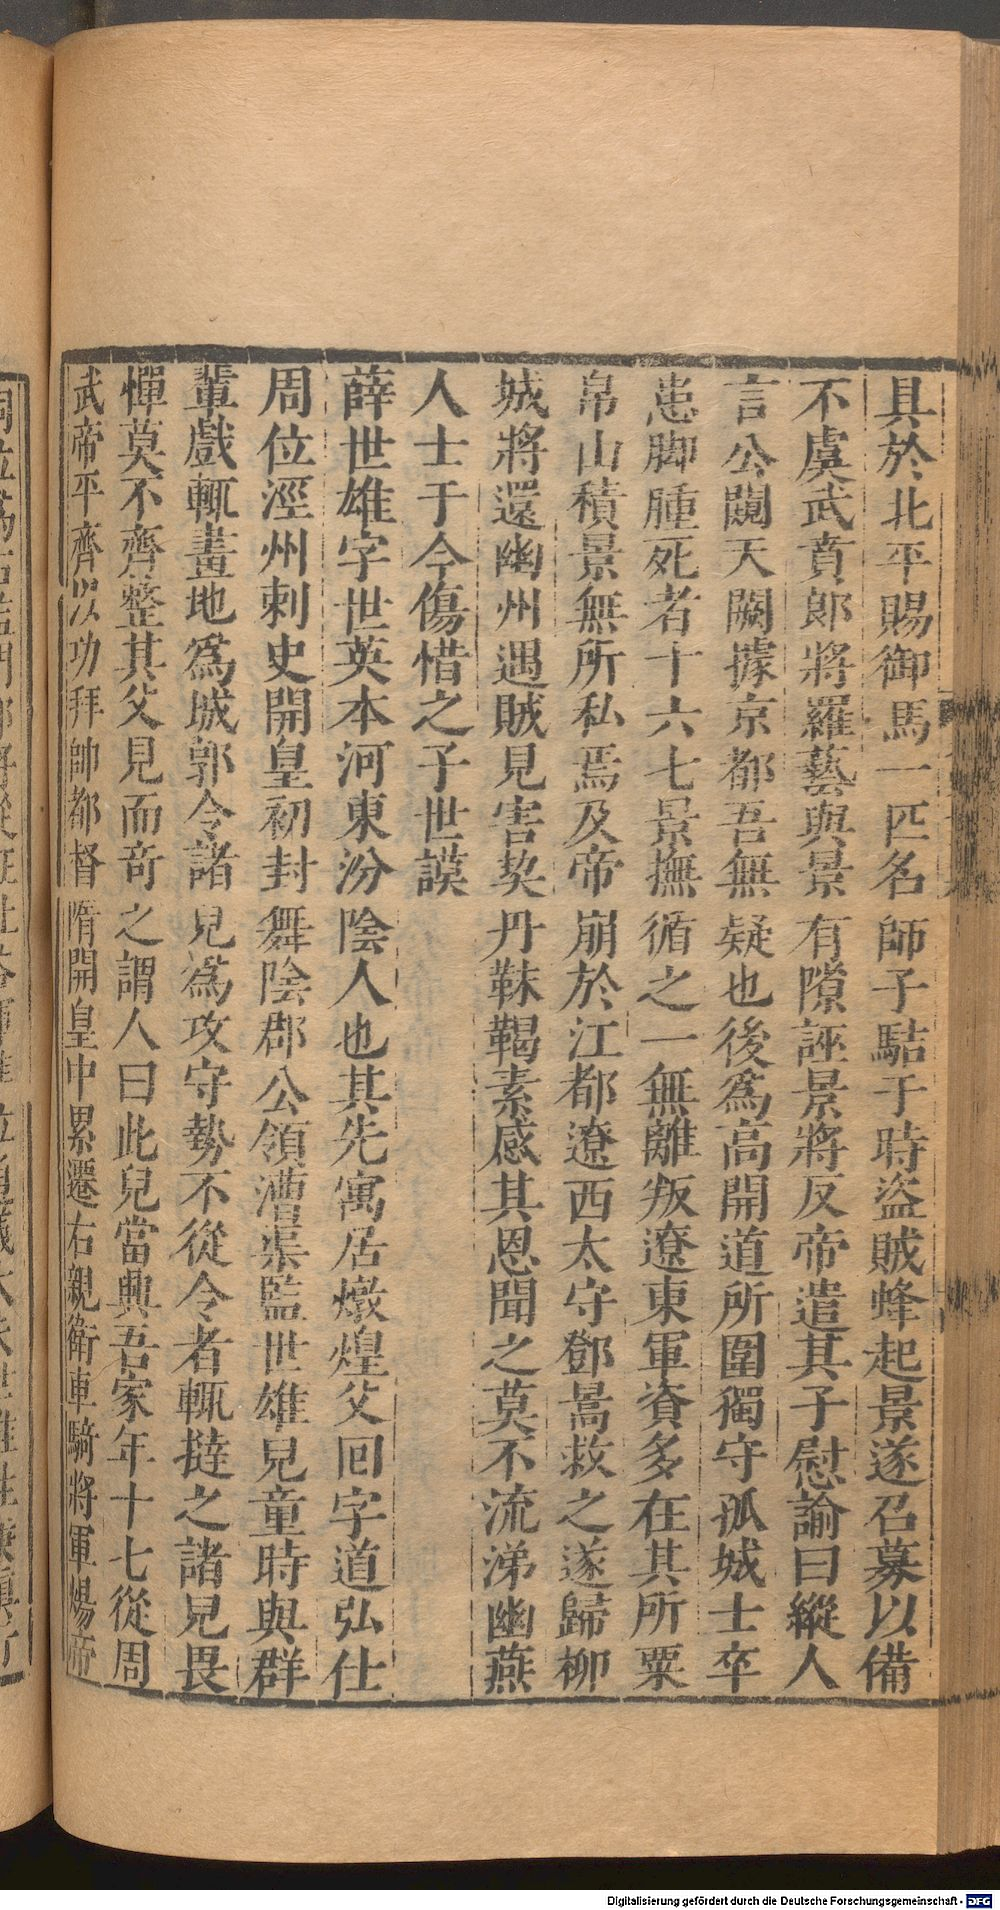 具於北平賜御馬一匹名師子䮕于時盜賊蜂起景遂召募以備
不虞武賁郎將羅藝與景有隙誣景將反帝遣其子慰諭曰縱人
言公闚天闕據京都吾無疑也後爲高開道所圍獨守孤城士卒
患脚腫死者十六七景撫循之一無離叛遼東軍資多在其所粟
帛山積景無所私焉及帝崩於江都遼西太守鄧暠救之遂歸柳
城將還幽州遇賊見害契丹靺鞨素感其恩聞之莫不流涕幽燕
人士于今傷惜之子世謨
薛世雄字世英本河東汾陰人也其先寓居燉煌父回字道弘仕
周位涇州刺史開皇初封舞陰郡公領漕渠監世雄兒童時與群
輩戲輒畫地爲城郭令諸兒爲攻守勢不從令者輒撻之諸兒畏
憚莫不齊整其父見而奇之謂人曰此兒當興吾家年十七從周
武帝平齊以功拜帥都督隋開皇中累遷右親衛車騎將軍煬帝
Digitalisierung gefördert durch die Deutsche Forschungsgemeinschaft - DFG